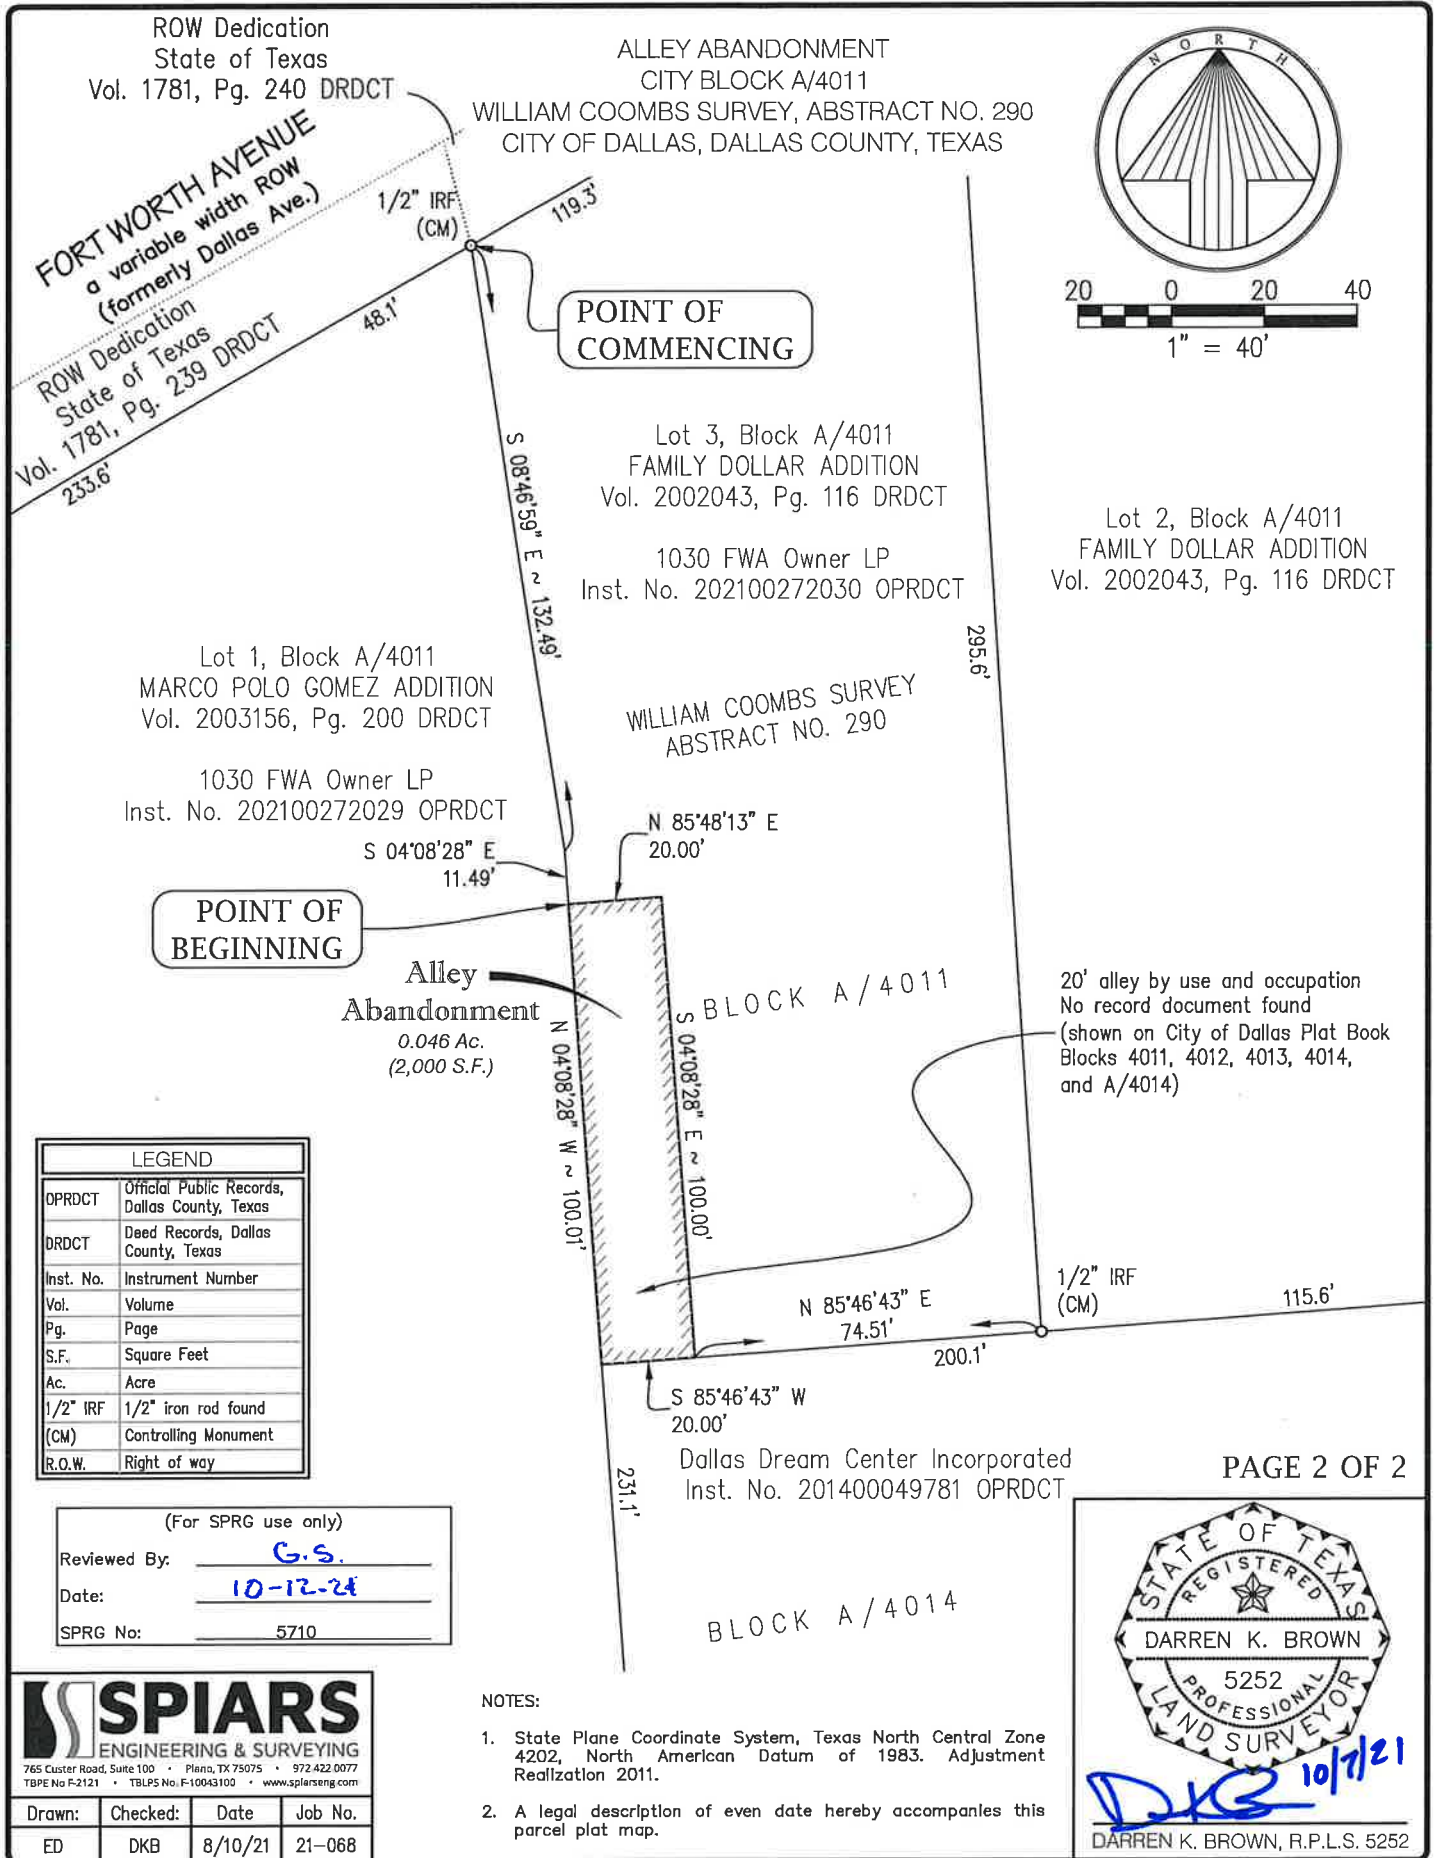 ROW Dedication
State of Texas
Vol. 1781, Pg. 240 DRDCT
ALLEY ABANDONMENT
CITY BLOCK A/4011
WILLIAM COOMBS SURVEY, ABSTRACT NO. 290
CITY OF DALLAS, DALLAS COUNTY, TEXAS
NORTH
20 0 20 40
1" = 40'
FORT WORTH AVENUE
a variable width ROW
(formerly Dallas Ave.)
ROW Dedication
State of Texas
Vol. 1781, Pg. 239 DRDCT
233.6'
48.1'
1/2" IRF
(CM)
119.3'
POINT OF
COMMENCING
S 08°46'59" E ~ 132.49'
Lot 3, Block A/4011
FAMILY DOLLAR ADDITION
Vol. 2002043, Pg. 116 DRDCT
1030 FWA Owner LP
Inst. No. 202100272030 OPRDCT
Lot 2, Block A/4011
FAMILY DOLLAR ADDITION
Vol. 2002043, Pg. 116 DRDCT
295.6'
Lot 1, Block A/4011
MARCO POLO GOMEZ ADDITION
Vol. 2003156, Pg. 200 DRDCT
1030 FWA Owner LP
Inst. No. 202100272029 OPRDCT
WILLIAM COOMBS SURVEY
ABSTRACT NO. 290
S 04°08'28" E
11.49'
N 85°48'13" E
20.00'
POINT OF
BEGINNING
Alley
Abandonment
0.046 Ac.
(2,000 S.F.)
N 04°08'28" W ~ 100.01'
S 04°08'28" E ~ 100.00'
BLOCK A/4011
20' alley by use and occupation
No record document found
(shown on City of Dallas Plat Book
Blocks 4011, 4012, 4013, 4014,
and A/4014)
LEGEND
OPRDCT Official Public Records, Dallas County, Texas
DRDCT Deed Records, Dallas County, Texas
Inst. No. Instrument Number
Vol. Volume
Pg. Page
S.F. Square Feet
Ac. Acre
1/2" IRF 1/2" iron rod found
(CM) Controlling Monument
R.O.W. Right of way
N 85°46'43" E
74.51'
200.1'
1/2" IRF
(CM)
115.6'
S 85°46'43" W
20.00'
231.1'
Dallas Dream Center Incorporated
Inst. No. 201400049781 OPRDCT
BLOCK A/4014
PAGE 2 OF 2
(For SPRG use only)
Reviewed By: G.S.
Date: 10-12-21
SPRG No: 5710
SPIARS
ENGINEERING & SURVEYING
765 Custer Road, Suite 100 • Plano, TX 75075 • 972.422.0077
TBPE No F-2121 • TBLPS No. F-10043100 • www.spiarseng.com
Drawn: Checked: Date Job No.
ED DKB 8/10/21 21-068
NOTES:
1. State Plane Coordinate System, Texas North Central Zone
4202, North American Datum of 1983. Adjustment
Realization 2011.
2. A legal description of even date hereby accompanies this
parcel plat map.
STATE OF TEXAS
REGISTERED
DARREN K. BROWN
5252
PROFESSIONAL
LAND SURVEYOR
10/7/21
DARREN K. BROWN, R.P.L.S. 5252